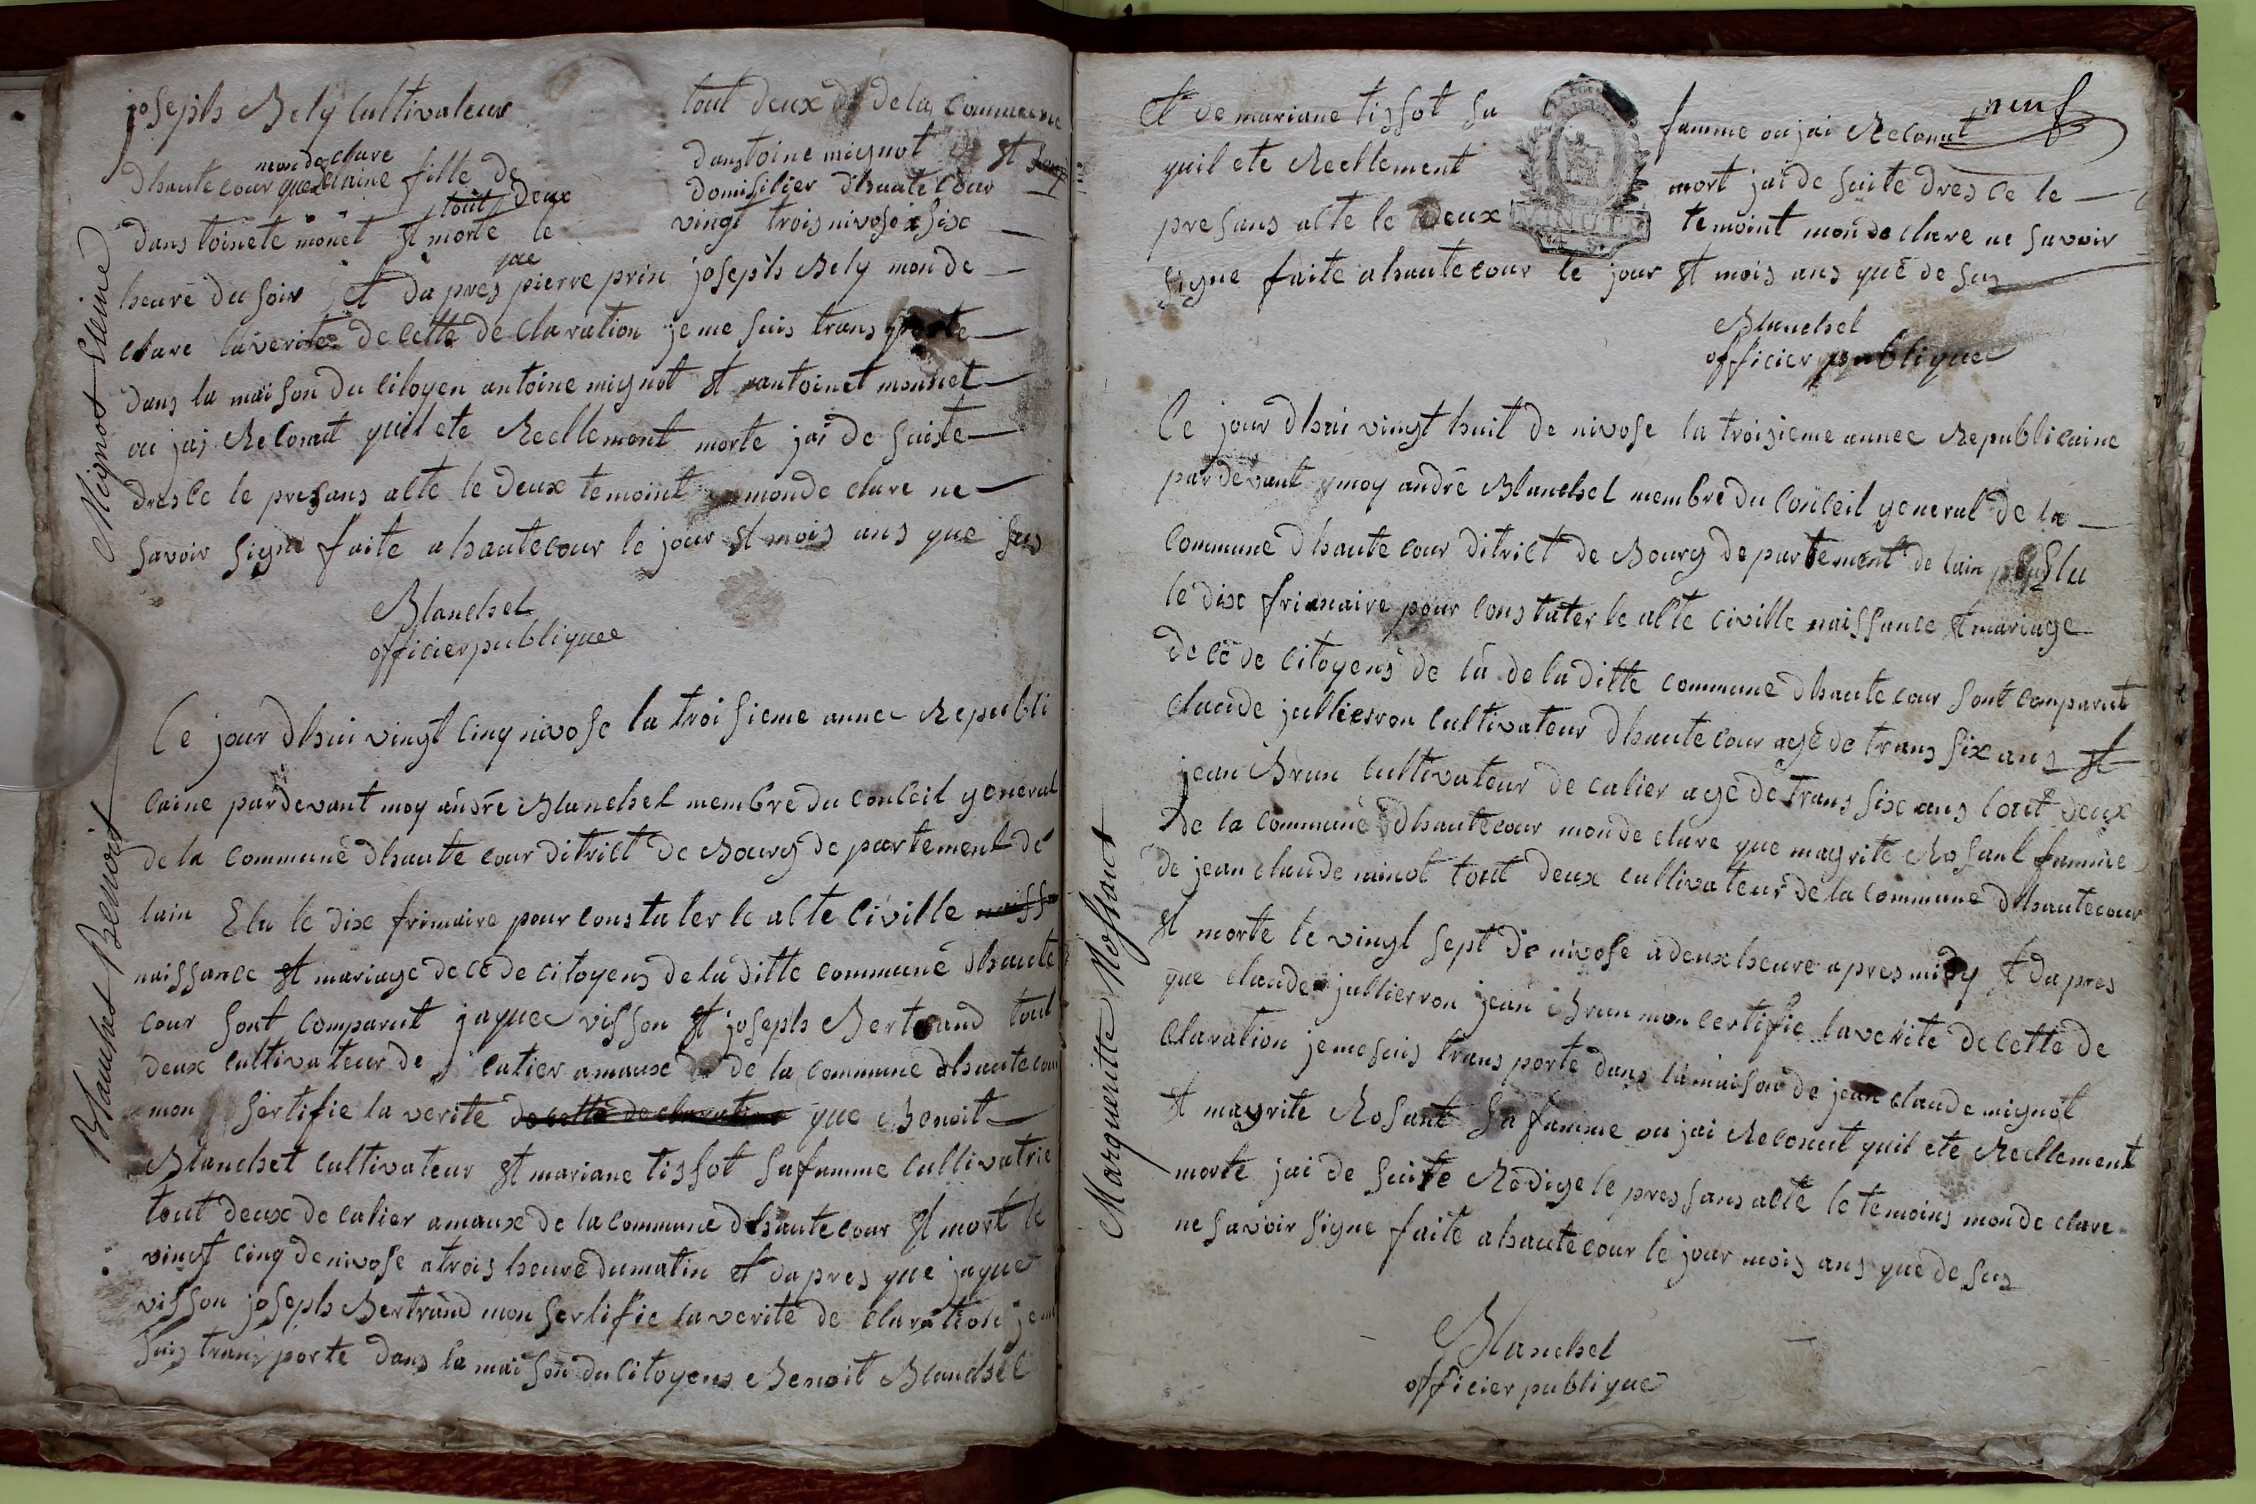 joseph Bely Cultivateur tout deux de la Commune
mon de clare
dhautecour que claine fille de dantoine mignot et
tout deux
dantoinete monet et morte le domisilier dhautecour
vingt trois nivose a sise
heure du soir et da pres que pierre prin joseph Bely mon de
clare la verite de cette de claration je me suis trans porte
dans la maison du citoyen antoine mignot et antoinet monnet
ou jai Reconut quil ete Reellement morte jai de suiste
dresce le presans acte le deux temoint monde clare ne
savoir signe faite a hautecour le jour et mois ans que sus
Blanchet
officier publiquee
Mignot Cleine
Ce jour dhui vingt cinq nivose la troisieme annee Republi
caine pardevant moy andré Blanchet membre du conceil general
de la commune dhaute cour ditrict de Bourg de partement de
lain Elu le dix frimaire pour constater le acte civille naissa
naissance et mariage de ce de citoyens de la ditte commune dhaute
cour sont comparut jaque visson et joseph Bertrand tout
deux cultivateur de catier amaux de la commune dhautecour
mon sertifie la verite de cette de claration que Benoit
Blanchet cultivateur et mariane tissot sa famme cullivatrie
tout deux de calier amaux de la commune dhautecour et mort le
vingt cinq de nivose a trois heure du matin et da pres que jaque
visson joseph Bertrand mon sertifie la verite de claration je me
suis trans porte dans la maison du citoyens Benoit Blanchet
Blanchet Benoit
neuf
et de mariane tissot sa famme ou jai Reconut
quil ete Reellement mort jai de suite dresce le
presans acte le deux temoint mon de clare ne savoir
MINUTE
signe faite a hautecour le jour et mois ans que de sus
Blanchet
officier publique
Ce jour dhui vingt huit de nivose la troisieme annee Republicaine
pardevant moy andré Blanchet membre du conceil general de la
commune dhaute cour ditrict de Bourg de partement de lain Elu
le dix frimaire pour constater le acte civille naissance et mariage
de ce de citoyens de la de la ditte commune dhautecour sont comparut
claude jullierron cultivateur dhautecour age de trans six ans et
jean Brun cultivateur de calier age de trans six ans tout deux
de la commune dhautecour mon de clare que magrite Rosant famme
de jean claude minot tout deux cultivateur de la commune dhautecour
et morte le vingt sept de nivose a deux heure apres midy et da pres
que claude jullierron jean Brun mon certifie la verite de cette de
claration je me suis trans porte dans la maison de jean claude mignot
et magrite Rosant sa famme ou jai Reconut quil ete Reellement
morte jai de suite Redige le pressans acte le temoins mon de clare
ne savoir signe faite a hautecour le jour mois ans que de sus
Blanchet
officier publique
Margueritte Rossant